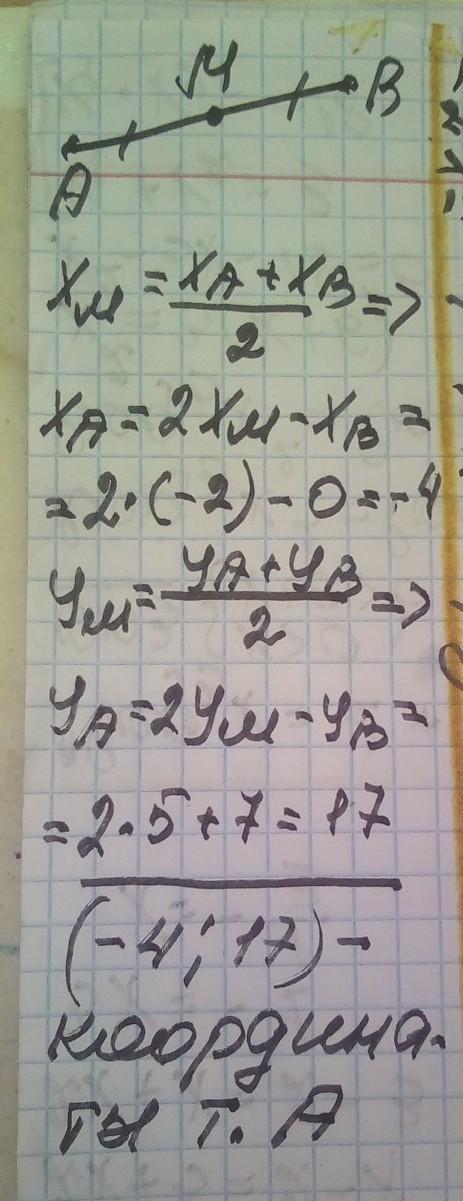 M
B
A
x_M = (x_A + x_B)/2 =>
x_A = 2x_M - x_B =
= 2·(-2) - 0 = -4
y_M = (y_A + y_B)/2 =>
y_A = 2y_M - y_B =
= 2·5 + 7 = 17
(-4; 17) -
координа-
ты т. A